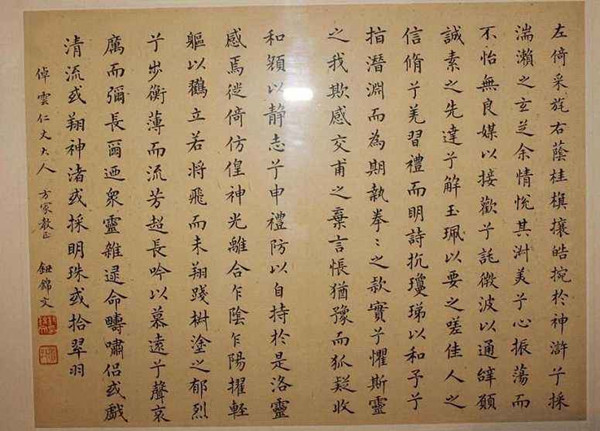 左倚采旄右蔭桂旗攘皓捥於神滸兮採
湍瀨之玄芝余情悅其淑美兮心振蕩而
不怡無良媒以接歡兮託微波以通辭願
誠素之先達兮解玉珮以要之嗟佳人之
信脩兮羌習禮而明詩抗瓊珶以和予兮
指潛淵而為期執拳〻之款實兮懼斯靈
之我欺感交甫之棄言悵猶豫而狐疑收
和顏以静志兮申禮防以自持於是洛靈
感焉徙倚仿偟神光離合乍陰乍陽擢輕
軀以鶴立若將飛而未翔踐椒塗之郁烈
兮步衡薄而流芳超長吟以慕遠兮聲哀
厲而彌長爾迺衆靈雜遝命疇嘯侶或戲
清流或翔神渚或採明珠或拾翠羽
倬雲仁丈大人 方家教正 鈕錦文